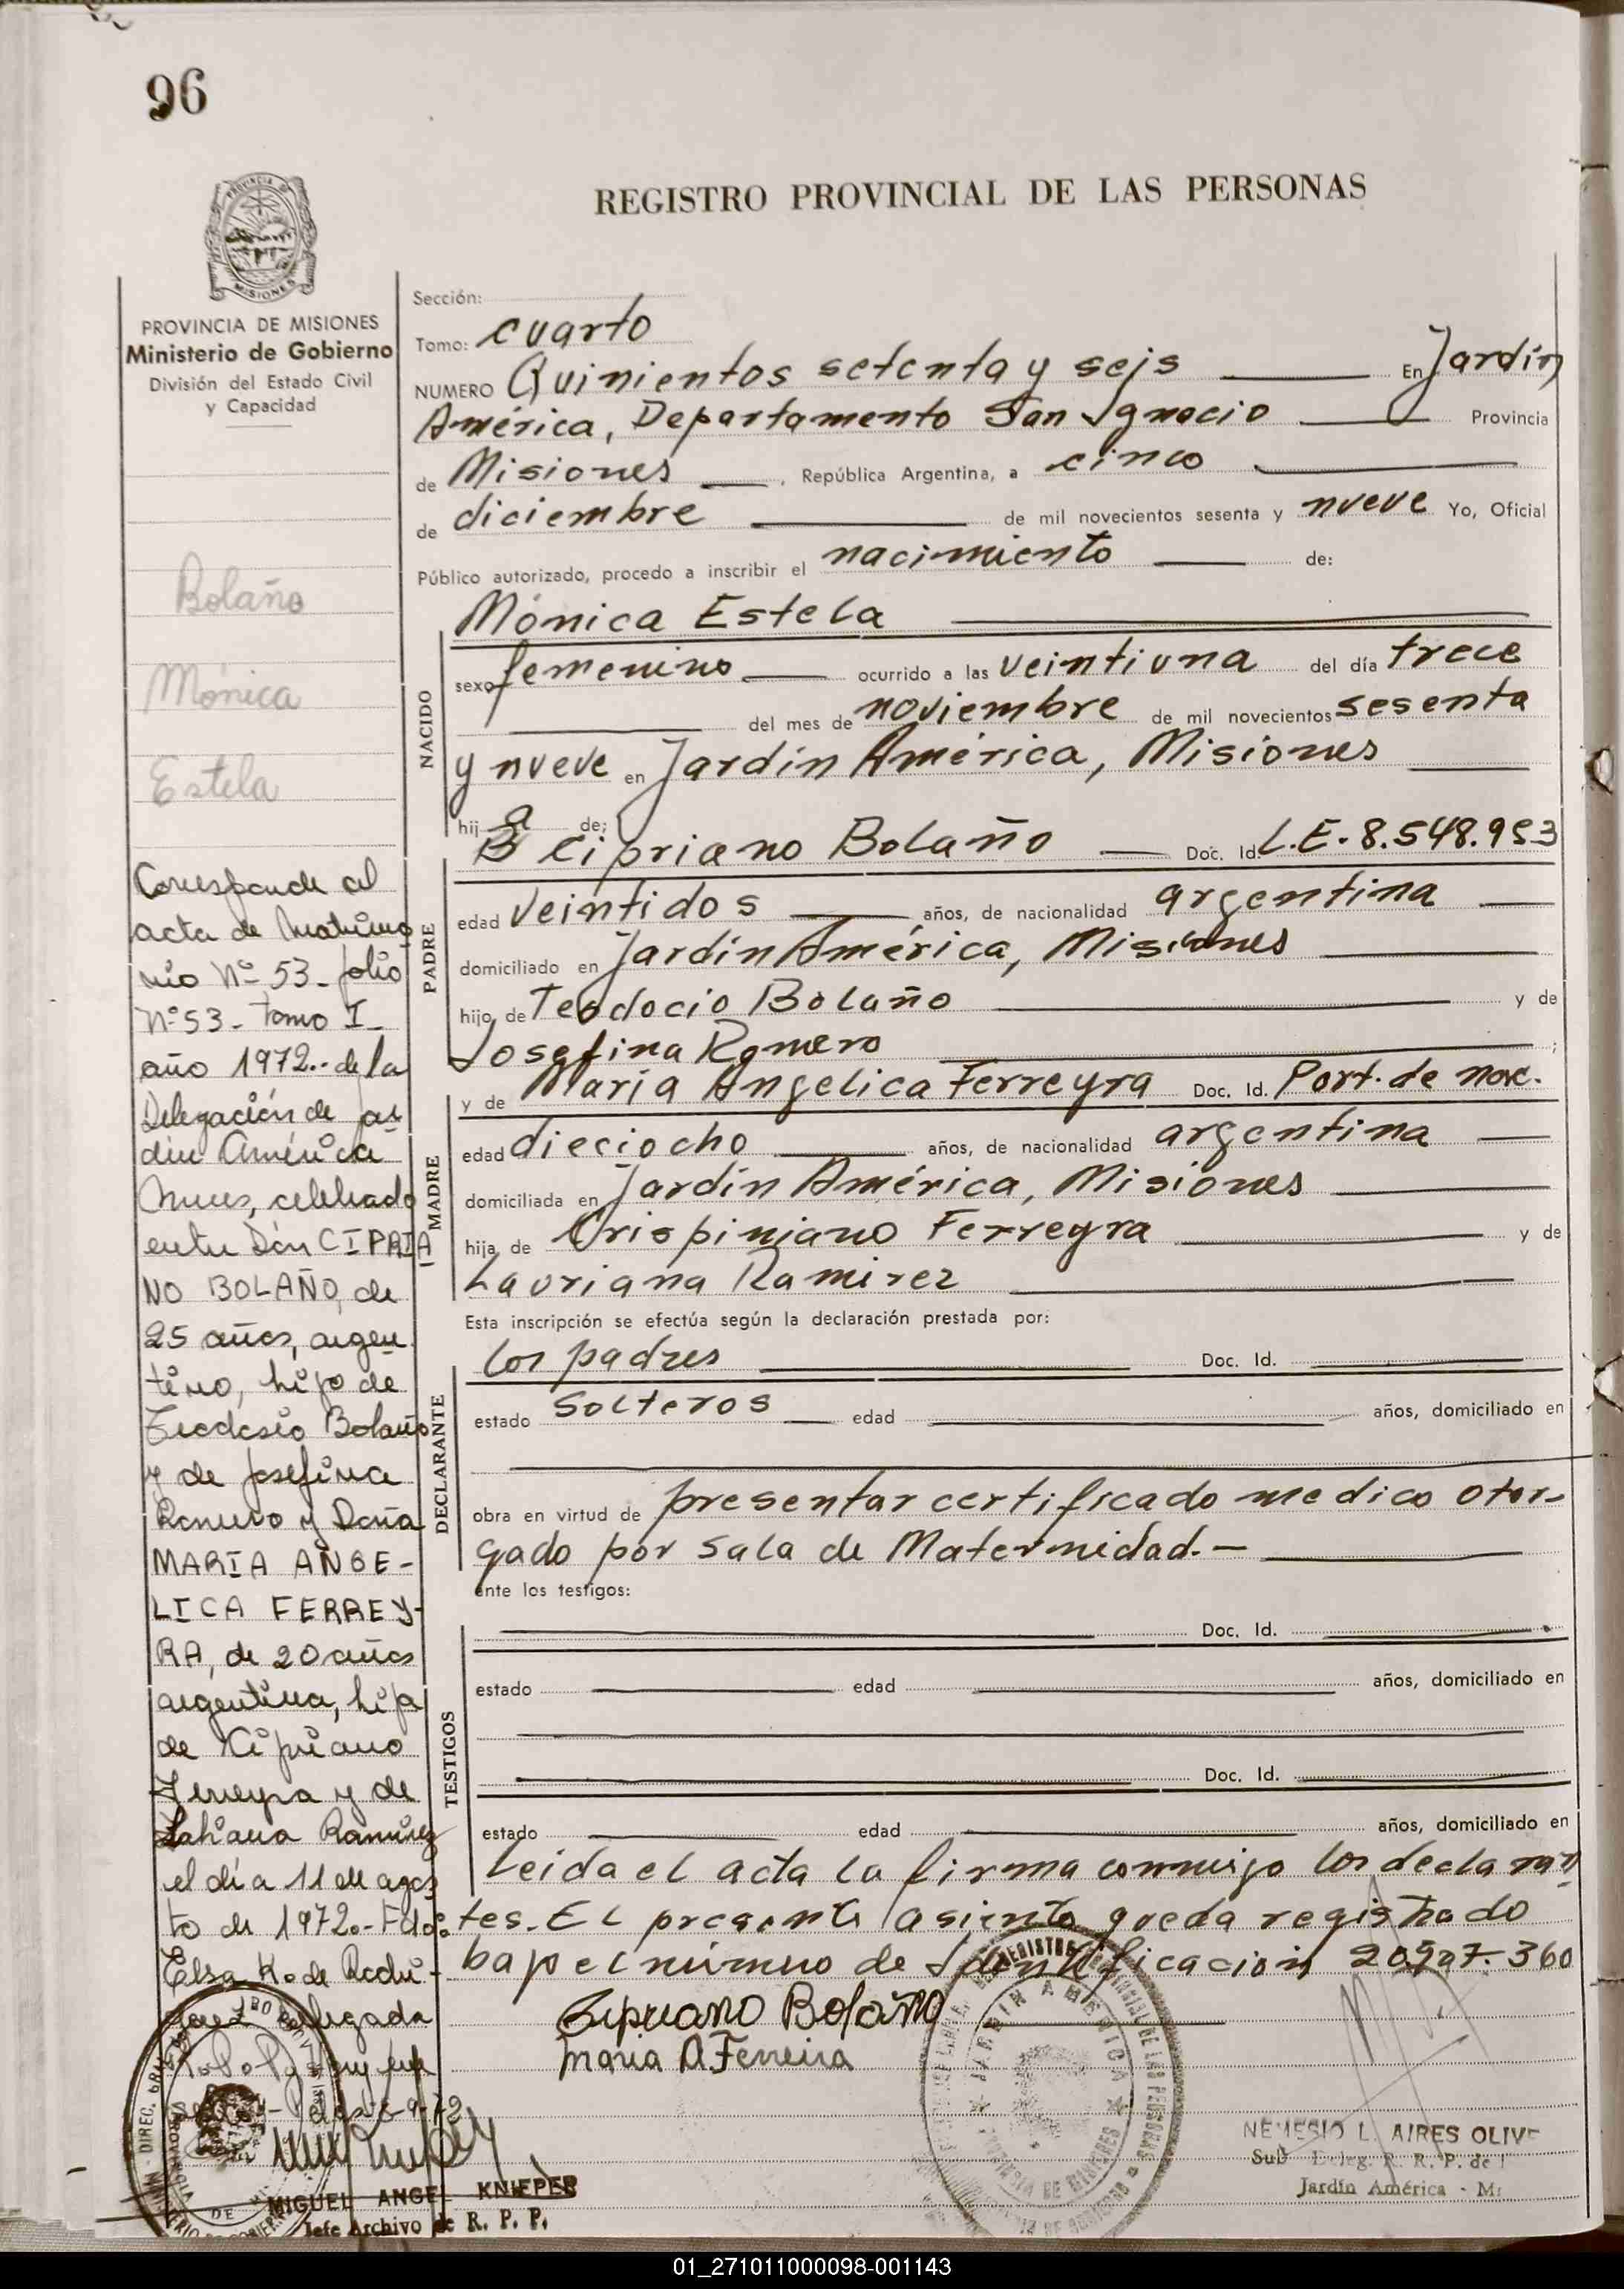 96
REGISTRO PROVINCIAL DE LAS PERSONAS
MISIONES
PROVINCIA DE MISIONES
Ministerio de Gobierno
División del Estado Civil
y Capacidad
Bolaño
Mónica
Estela
Corresponde al
acta de Matrimo
nio Nº 53 - folio
Nº 53 - Tomo I -
año 1972.- de la
Delegación de Jar
din América
Mnes, celebrado
entre Don CIPRIA
NO BOLAÑO, de
25 años, argen
tino, hijo de
Teodosio Bolaño
y de Josefina
Romero y Doña
MARIA ANGE-
LICA FERREY-
RA, de 20 años
argentina, hija
de Cipriano
Ferreyra y de
Ramirez
el día 11 de agos
to de 1972.- Fdo:
Elsa K. de Rodri-
guez delegada
MIGUEL ANGEL KNIEPER
Jefe Archivo de R. P. P.
Sección:
Tomo: cuarto
NUMERO Quinientos setenta y seis En Jardín
América, Departamento San Ignacio Provincia
de Misiones, República Argentina, a cinco
de diciembre de mil novecientos sesenta y nueve Yo, Oficial
Público autorizado, procedo a inscribir el nacimiento de:
Mónica Estela
NACIDO
sexo femenino ocurrido a las veintiuna del día trece
del mes de noviembre de mil novecientos sesenta
y nueve en Jardín América, Misiones
hij a de:
Cipriano Bolaño Doc. Id. L.E. 8.548.953
PADRE
edad veintidos años, de nacionalidad argentina
domiciliado en Jardín América, Misiones
hijo de Teodocio Bolaño y de
Josefina Romero ;
y de María Angelica Ferreyra Doc. Id. Port. de nac.
MADRE
edad dieciocho años, de nacionalidad argentina
domiciliada en Jardín América, Misiones
hija de Crispiniano Ferreyra y de
Lauriana Ramirez
Esta inscripción se efectúa según la declaración prestada por:
los padres Doc. Id.
DECLARANTE
estado solteros edad años, domiciliado en
obra en virtud de presentar certificado medico otor-
gado por Sala de Maternidad.-
ante los testigos:
Doc. Id.
TESTIGOS
estado edad años, domiciliado en
Doc. Id.
estado edad años, domiciliado en
Leida el acta la firma conmigo los declaran
tes. El presente asiento queda registrado
bajo el número de Identificación 20.927.360
Cipriano Bolaño
Maria A. Ferreira
JARDIN AMERICA
NEMESIO L. AIRES OLIVE
Sub Deleg. R. R. P. de
Jardín América - Mi
01_271011000098-001143